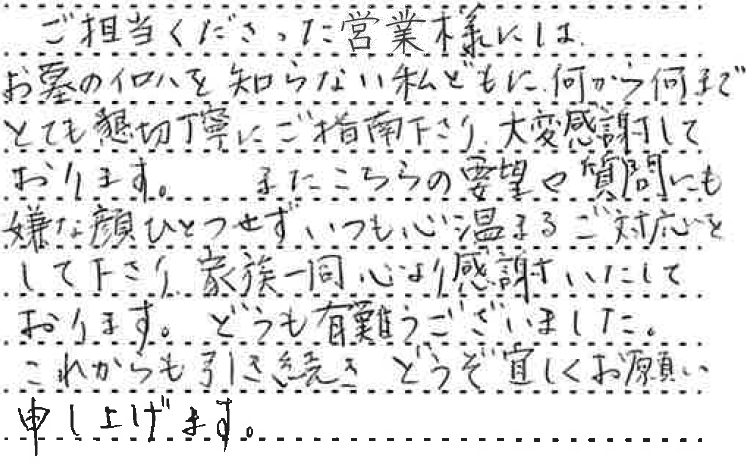 ご担当くださった営業様には、
お墓のイロハを知らない私どもに、何から何まで
とても懇切丁寧にご指南下さり、大変感謝して
おります。 またこちらの要望や質問にも
嫌な顔ひとつせず、いつも心温まるご対応を
して下さり、家族一同心より感謝いたして
おります。どうも有難うございました。
これからも引き続き どうぞ宜しくお願い
申し上げます。